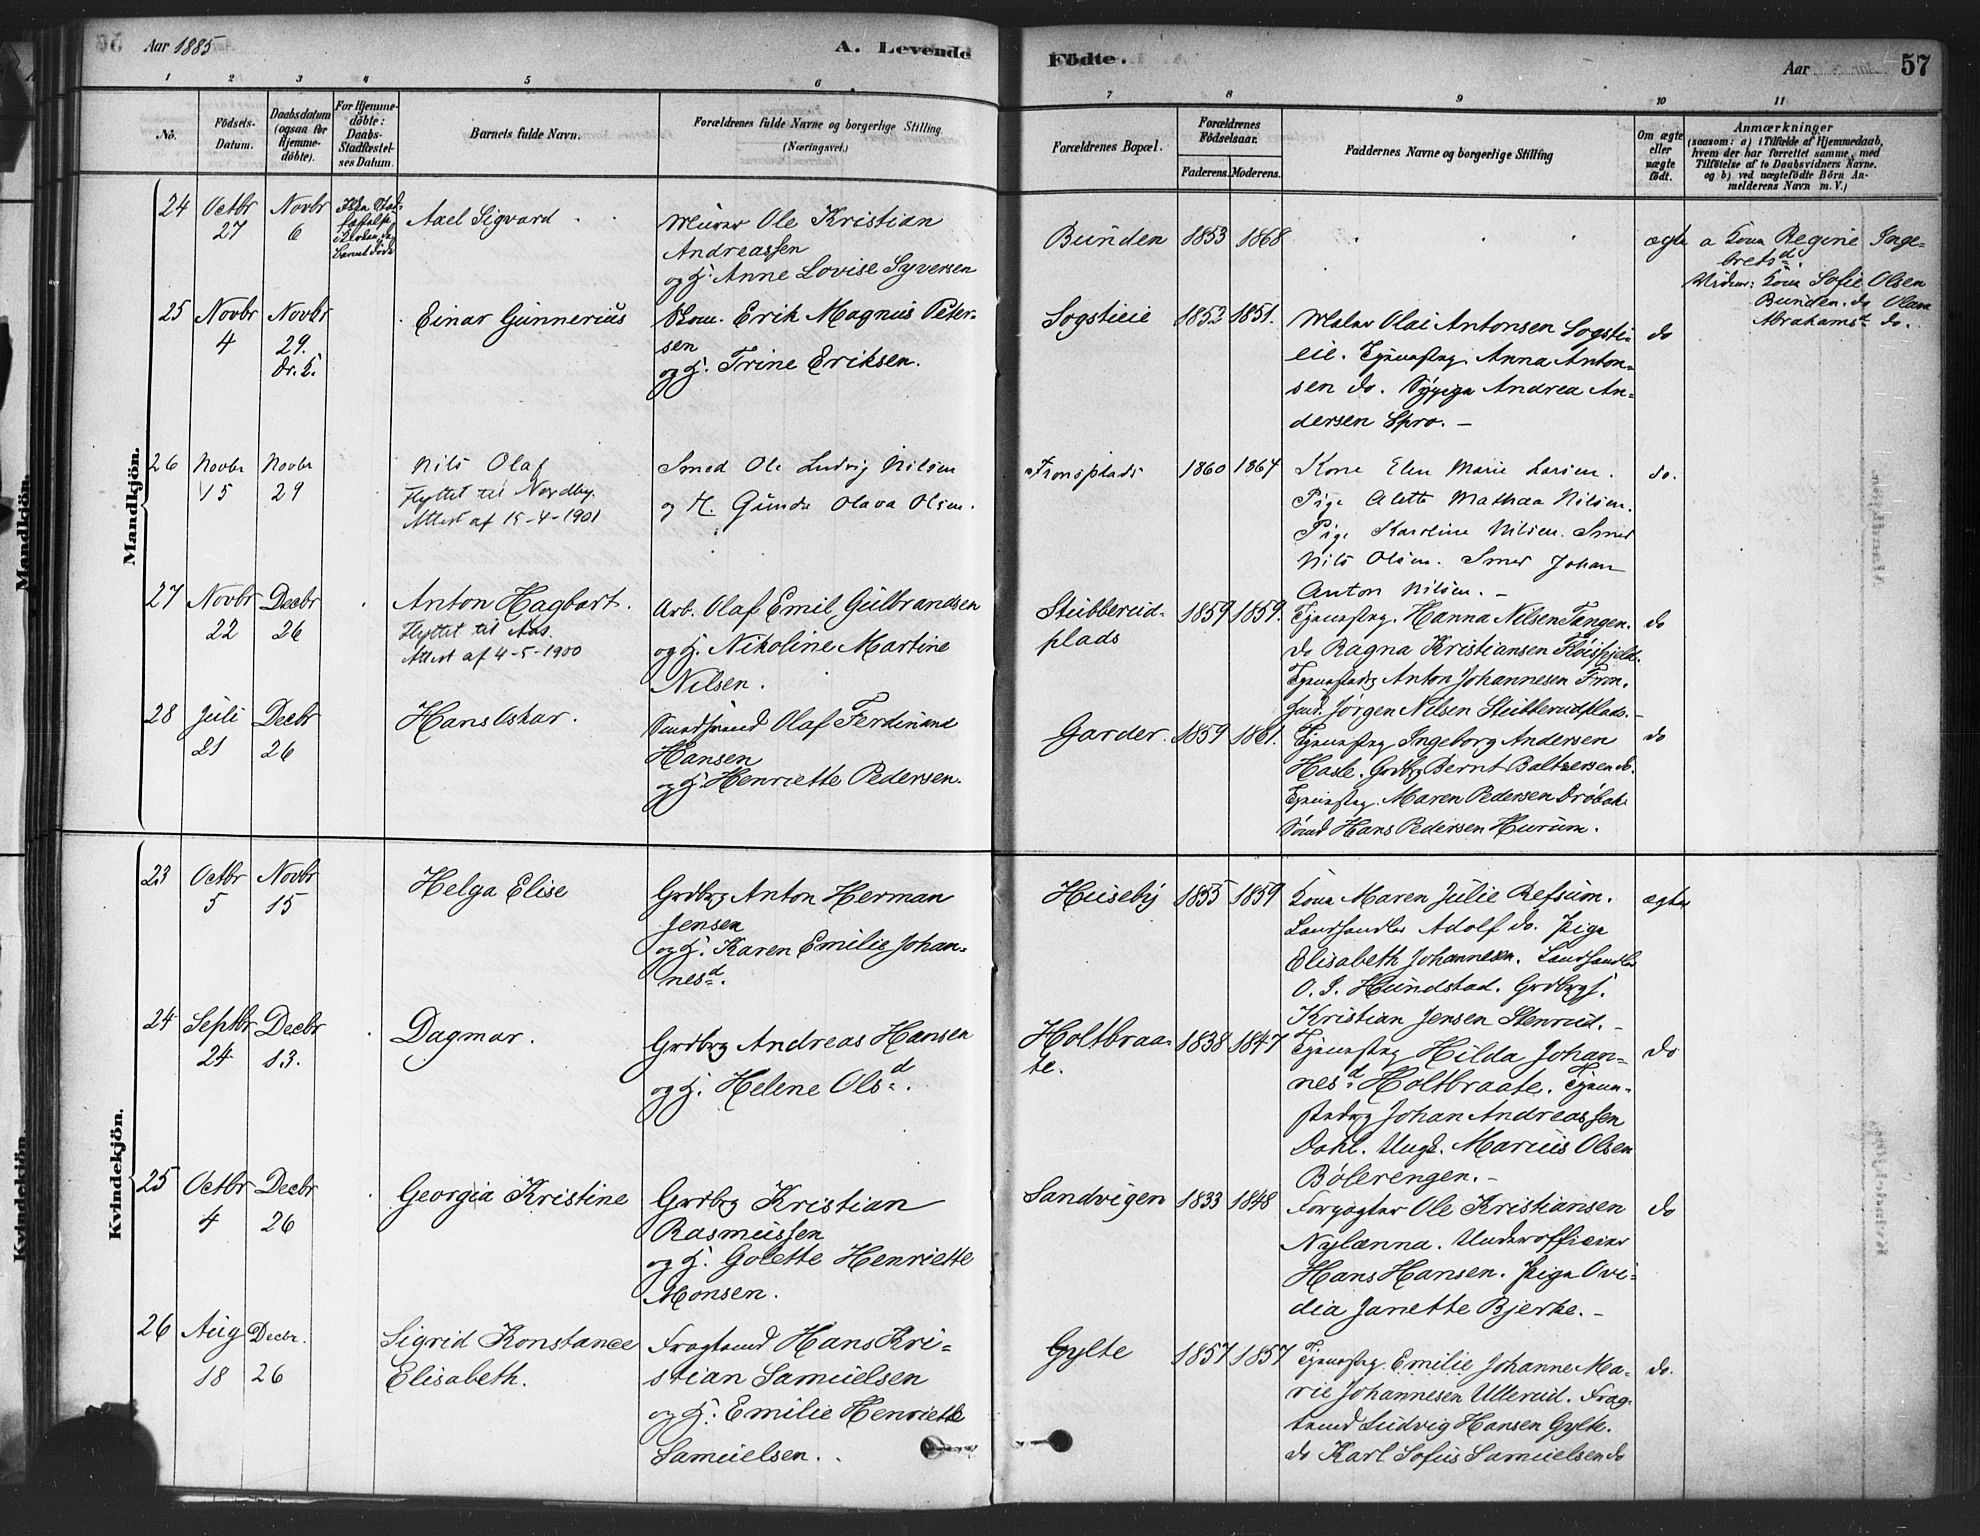 Aar 1885
A. Levende
Födte.
Aar
57
1 2 3 4 5 6 7 8 9 10 11
No.
Födsels-
Datum.
Daabsdatum
(ogsaa for
Hjemme-
döbte).
For Hjemme-
döbte:
Daabs-
Stadfæstel-
ses Datum.
Barnets fulde Navn.
Forældrenes fulde Navne og borgerlige Stilling
(Næringsvei.)
Forældrenes Bopæl.
Forældrenes
Födselsaar.
Faderens. Moderens.
Faddernes Navne og borgerlige Stilling
Om ægte
eller
uægte
födt.
Anmærkninger
(saasom: a) i Tilfælde af Hjemmedaab,
hvem der har forrettet samme, med
Tilföielse af to Daabsvidners Navne.
og b) ved uægtefödte Börn An-
melderens Navn m. V.)
Mandkjön.
24 Octbr Novbr
27 6
Axel Sigvard
Murer Ole Kristian
Andreassen
og H. Anne Lovise Syversen
Bunden 1853 1868
ægte
a Kona Regine Inge-
bretsd.
Vidner: Kona Sofie Olsen
Bunden. do Olava
Abrahamsd do.
25 Novbr Novbr
4 29.
Einar Gunnerius
Skom. Erik Magnus Peter-
sen
og H. Trine Eriksen.
Sogstieie 1852 1851.
Maler Olai Antonsen Sogsti-
eie. Tjenestpg. Anna Anton-
sen do. Sypige Andrea An-
dersen Spro. –
do
26 Novbr Novbr
15 29
Nils Olaf
Flyttet til Nordby.
Attest af 15-4-1901
Smed Ole Ludvig Nilsen
og H. Gunda Olava Olsen.
Fronsplads 1860 1864
Kone Elen Marie Larsen.
Pige Alette Mathea Nilsen.
Pige Karoline Nilsen. Smed
Nils Olsen. Smed Johan
Anton Nilsen. –
do.
27 Novbr Decbr
22 26
Anton Hagbart.
Flyttet til Aas.
Attest af 4-5-1900
Arb. Olaf Emil Gulbrandsen
og H. Nikoline Martine
Nilsen.
Stubberud-
plads
1859 1859.
Tjenestpg. Hanna Nilsen Tangen.
do Ragna Kristiansen Fløisfjeld.
Anton Johannesen Fron.
Jørgen Nilsen Stubberudplads. –
do
28 Juli Decbr
21 26
Hans Oskar.
Olaf Ferdinand
Hansen
og H. Henriette Pedersen.
Garder. 1859 1861.
Tjenestpg Ingeborg Andersen
Hasle. Grdbrg Bernt Baltsersen do.
Tjenestpg. Maren Pedersen Drøbak.
Hans Pedersen Hurum.
do
Kvindekjön.
23 Octbr Novbr
5 15
Helga Elise
Grdbrg Anton Herman
Jensen
og H. Karen Emilie Johan-
nesd.
Huseby 1855 1859
Kona Maren Julie Refsum.
Landhandler Adolf do. Pige
Elisabeth Johannesen. Landhandler
O. J. Hundstad. Grdbrgs.
Kristian Jensen Stenrud. –
ægte
24 Septbr Decbr
24 13.
Dagmar.
Grdbrg Andreas Hansen
og H. Helene Olsd.
Holtbraa-
te.
1838 1847
Tjenestpg Hilda Johan-
nesd Holtbraate. Tjene-
Johan Andreassen
Dahl. Ungk. Marius Olsen
Bölerengen. –
do
25 Octbr Decbr
4 26
Georgia Kristine
Grdbrg Kristian
Rasmussen
og H. Golette Henriette
Monsen.
Sandvigen 1833 1848
Forpagter Ole Kristiansen
Nylænna. Underofficier
Hans Hansen. Pige Ovi-
dia Janette Bjerke. –
do
26 Aug Decbr.
18 26
Sigrid Konstance
Elisabeth.
Fragtmd Hans Kri-
stian Samuelsen
og H. Emilie Henriette
Samuelsen.
Gylte 1857 1857
Tjenestpg. Emilie Johanne Ma-
rie Johannesen Ullerud. Frag-
tmd Ludvig Hansen Gylte.
do Karl Sofus Samuelsen do
do.